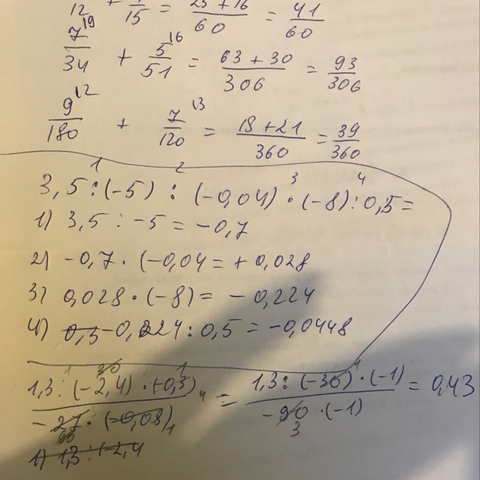 12 + 15 = 25 + 16 / 60 = 41/60
7/34 19 + 5/51 16 = 63 + 30 / 306 = 93/306
9/180 12 + 7/120 13 = 18 + 21 / 360 = 39/360
1 2 3 4
3,5 : (-5) : (-0,04) · (-8) : 0,5 =
1) 3,5 : -5 = -0,7
2) -0,7 · (-0,04 = + 0,028
3) 0,028 · (-8) = - 0,224
4) 0,3 -0,224 : 0,5 = -0,0448
1,3 : (-2,4) · (-0,3) / -27 · (-0,08) = 1,3 : (-30) · (-1) / -90 · (-1) = 0,43
3
1) 1,3 : (-2,4